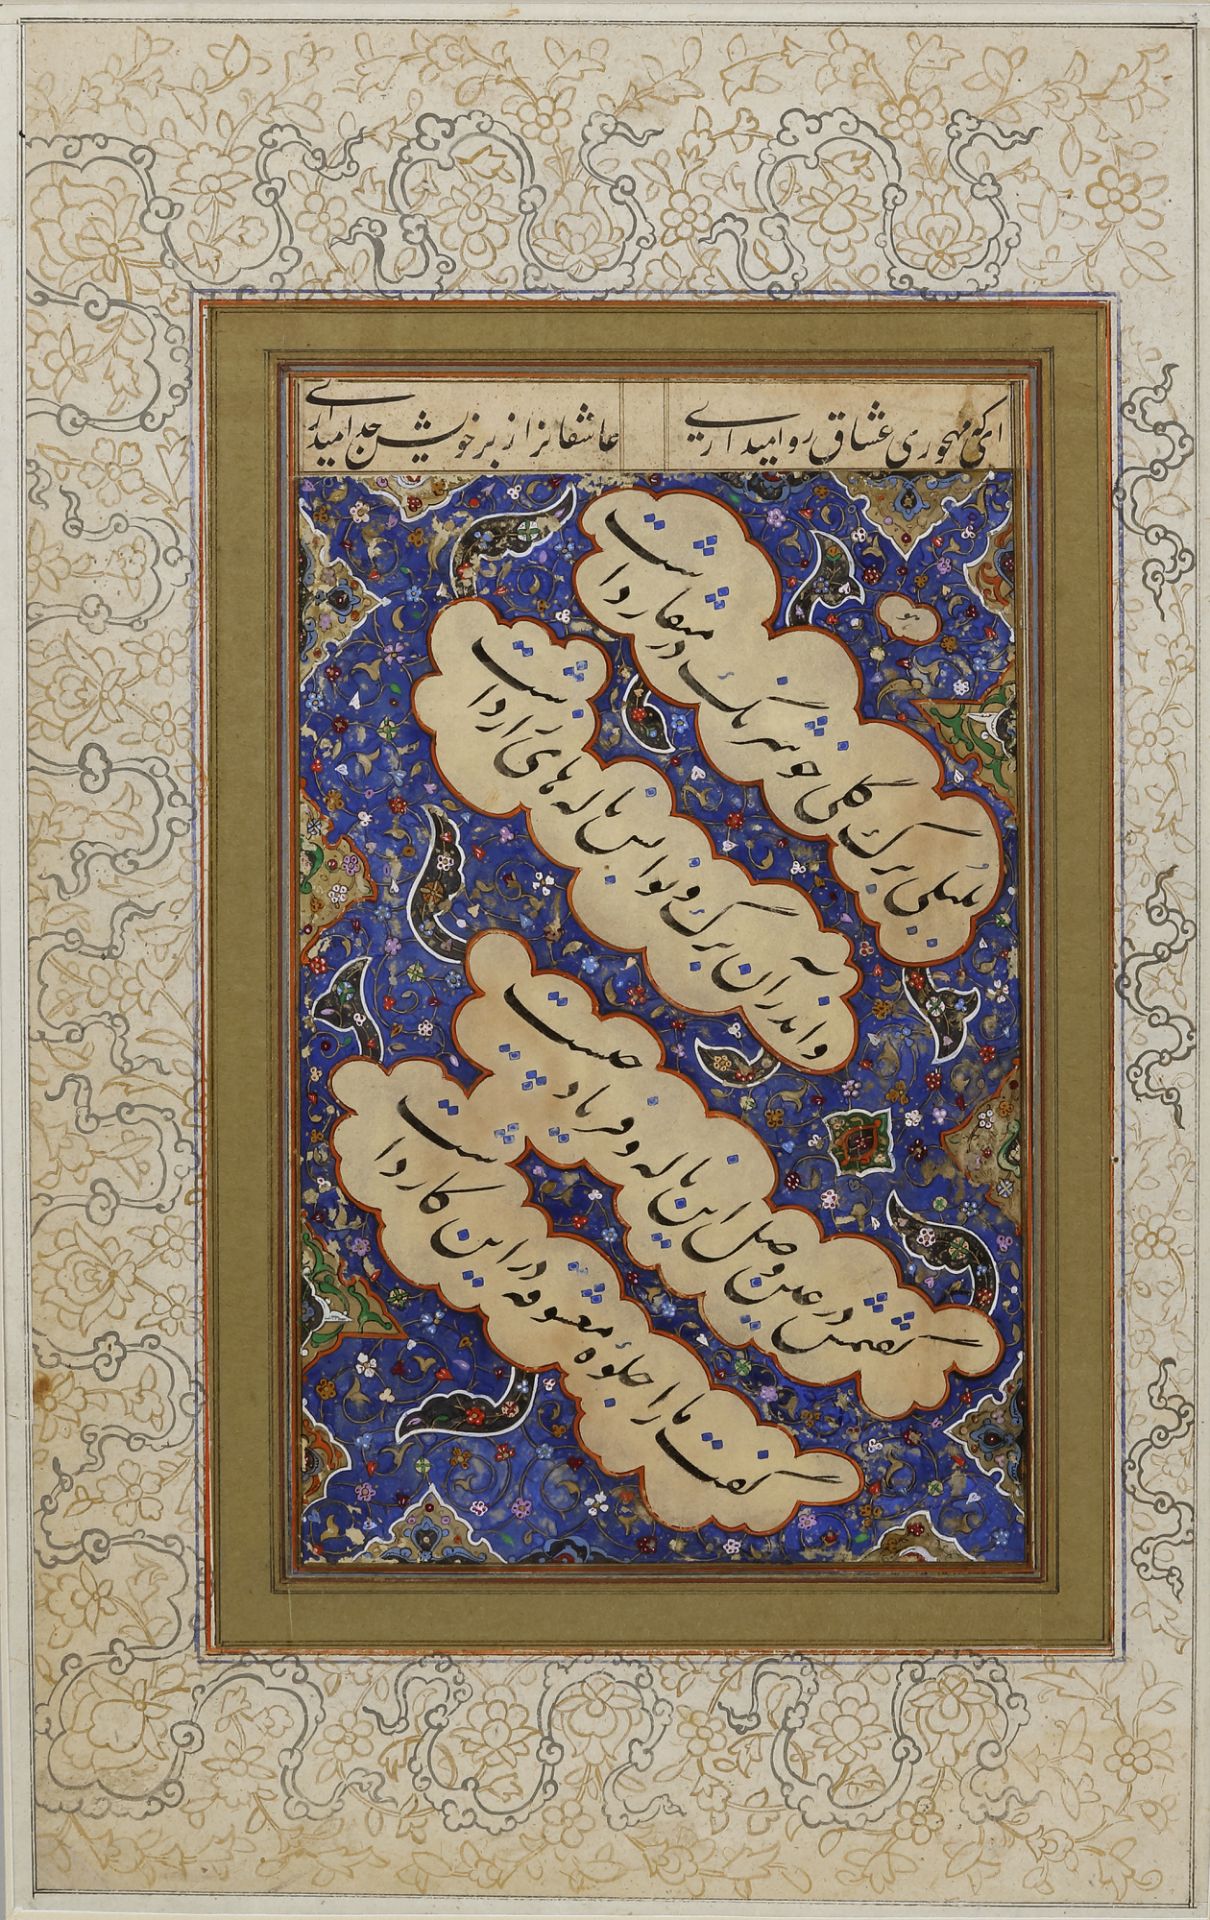 ای که مهجوری عشاق روا میداری
عاشقانرا ز بر خویش جدا میداری
هو
بلبلی برک گلی خوشرنک در منقار داشت
واندر آن برک و نوا بس ناله های زار داشت
گفتمش در عین وصل این ناله و فریاد چیست
گفت ما را جلوه معشوقه در این کار داشت